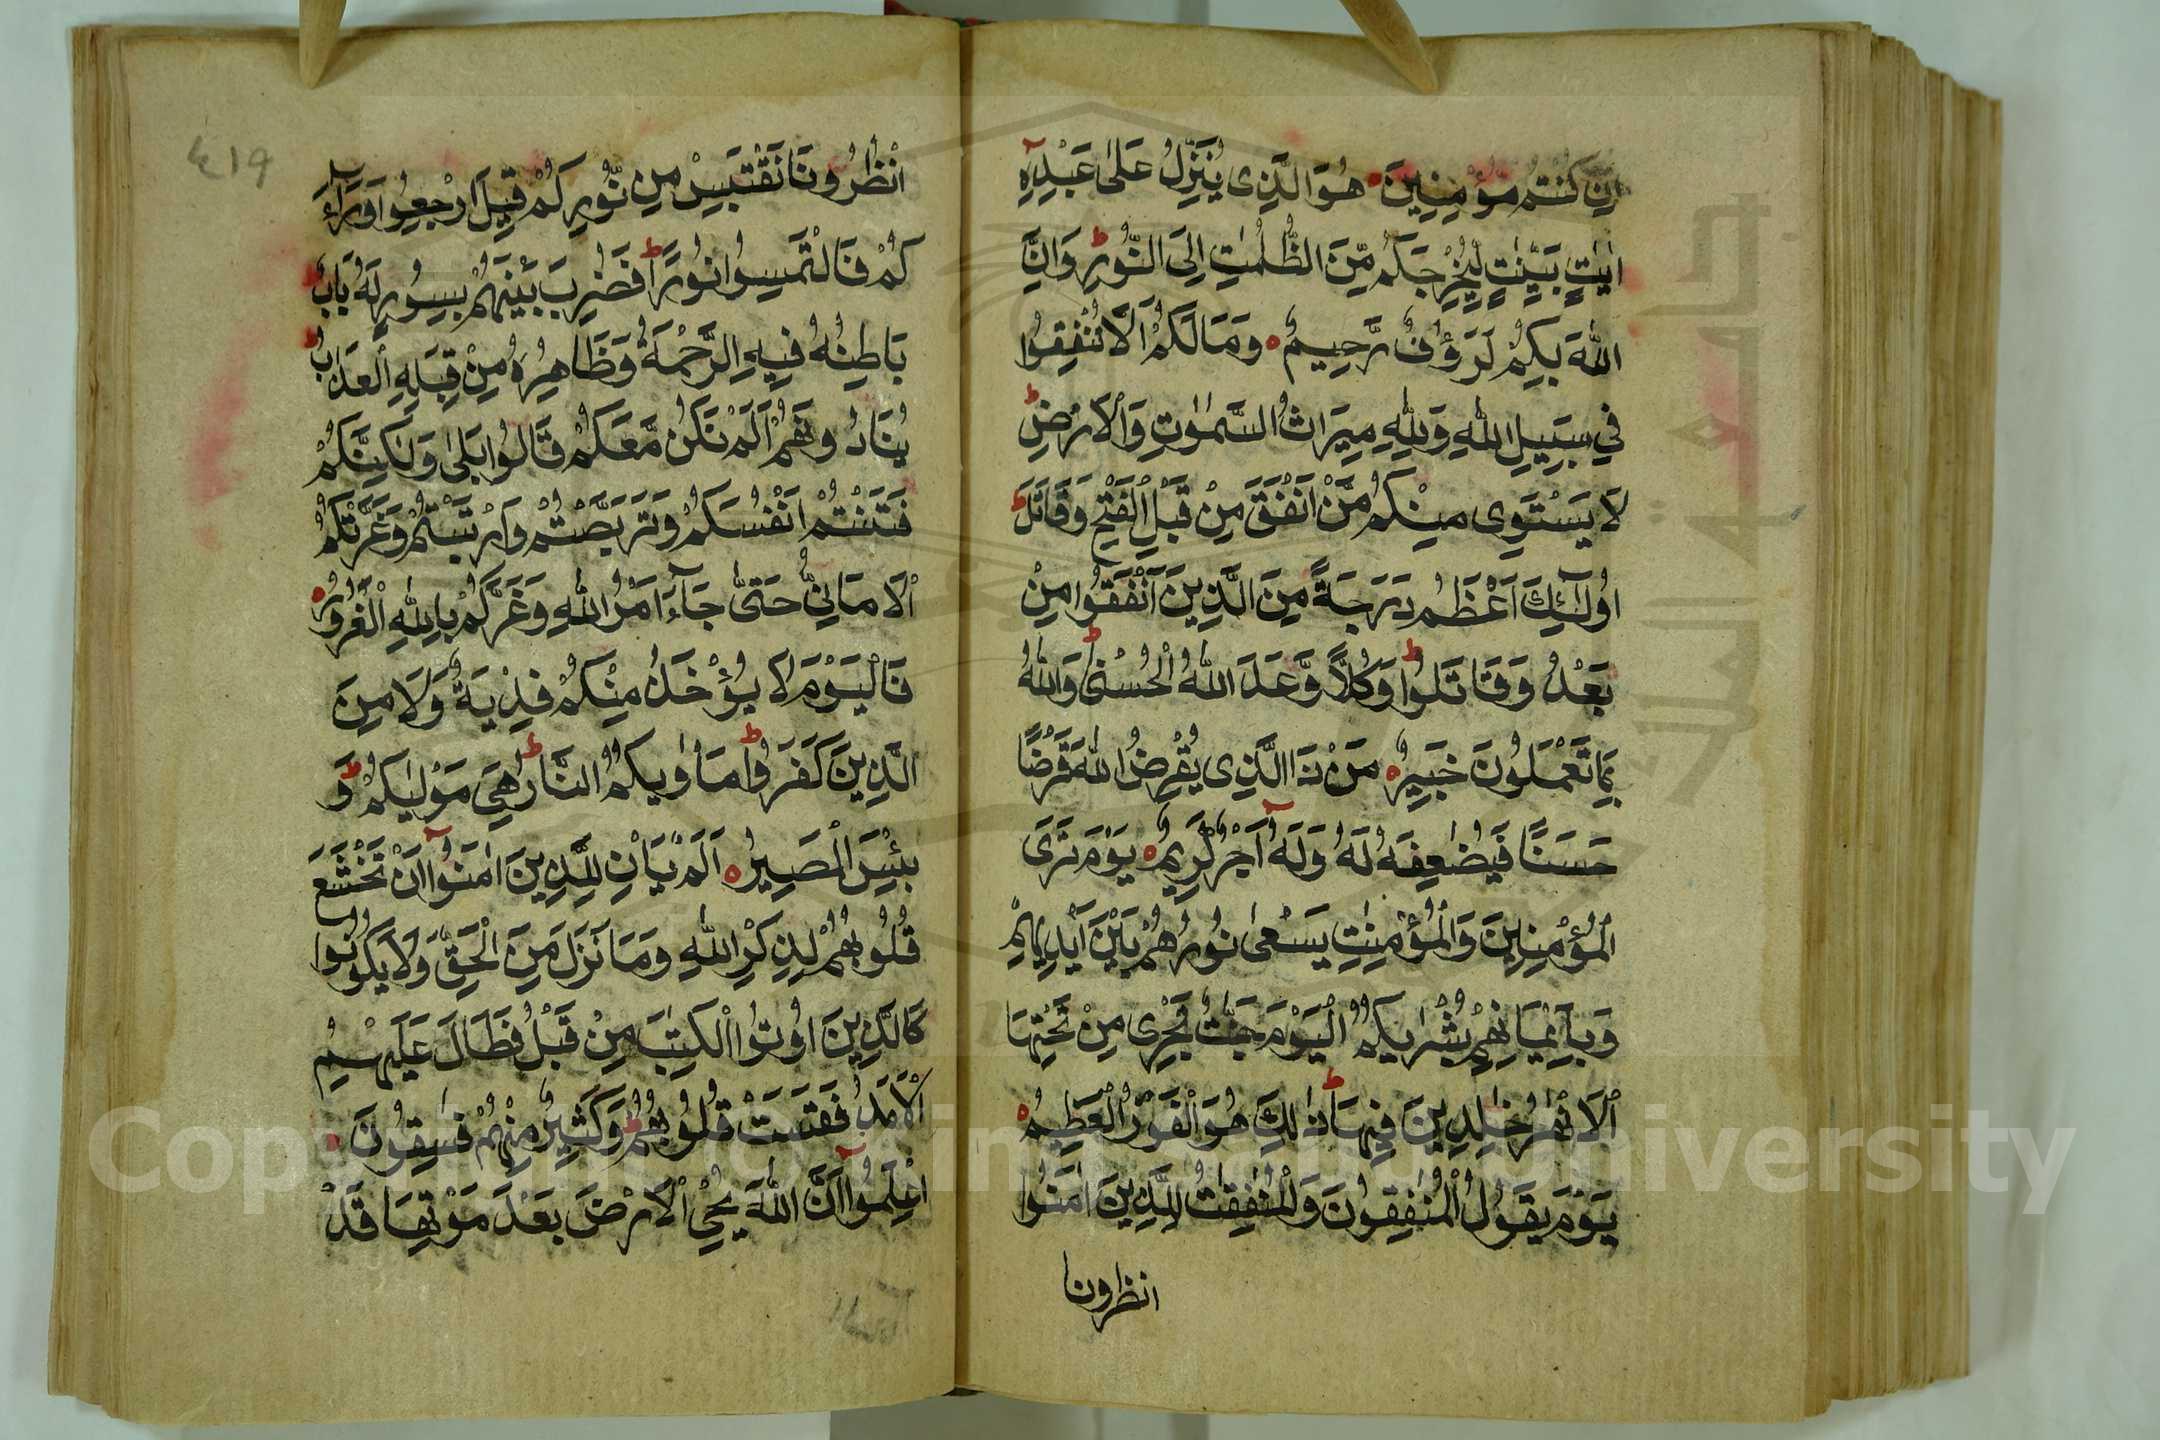 اِنْ كُنْتُمْ مُؤْمِنِيْنَ هُوَ الَّذِى يُنَزِّلُ عَلٰى عَبْدِهٖ
اٰيٰتٍ بَيِّنٰتٍ لِّيُخْرِجَكُمْ مِّنَ الظُّلُمٰتِ اِلَى النُّوْرِ ط وَاِنَّ
اللهَ بِكُمْ لَرَؤُفٌ رَّحِيْمٌ وَمَا لَكُمْ اَلَّا تُنْفِقُوْا
فِيْ سَبِيْلِ اللهِ وَلِلّٰهِ مِيْرَاثُ السَّمٰوٰتِ وَالْاَرْضِ ط
لَا يَسْتَوِى مِنْكُمْ مَّنْ اَنْفَقَ مِنْ قَبْلِ الْفَتْحِ وَقَاتَلَ ط
اُولٰٓئِكَ اَعْظَمُ دَرَجَةً مِنَ الَّذِيْنَ اَنْفَقُوْا مِنْ
بَعْدُ وَقَاتَلُوْا ط وَكُلًّا وَّعَدَ اللهُ الْحُسْنٰى ط وَاللهُ
بِمَا تَعْمَلُوْنَ خَبِيْرٌ مَنْ ذَا الَّذِى يُقْرِضُ اللهَ قَرْضًا
حَسَنًا فَيُضٰعِفَهُ لَهُ وَلَهٗ اَجْرٌ كَرِيْمٌ يَوْمَ تَرَى
الْمُؤْمِنِيْنَ وَالْمُؤْمِنٰتِ يَسْعٰى نُوْرُهُمْ بَيْنَ اَيْدِيْهِمْ
وَبِاَيْمَانِهِمْ بُشْرٰىكُمُ الْيَوْمَ جَنّٰتٌ تَجْرِى مِنْ تَحْتِهَا
الْاَنْهٰرُ خٰلِدِيْنَ فِيْهَا ط ذٰلِكَ هُوَ الْفَوْزُ الْعَظِيْمُ
يَوْمَ يَقُوْلُ الْمُنٰفِقُوْنَ وَالْمُنٰفِقٰتُ لِلَّذِيْنَ اٰمَنُوْا
انظرونا
٤١٩
انْظُرُوْنَا نَقْتَبِسْ مِنْ نُّوْرِكُمْ قِيْلَ ارْجِعُوْا وَرَآءَ
كُمْ فَالْتَمِسُوْا نُوْرًا ط فَضُرِبَ بَيْنَهُمْ بِسُوْرٍ لَهُ بَابٌ ط
بَاطِنُهُ فِيْهِ الرَّحْمَةُ وَظَاهِرُهُ مِنْ قِبَلِهِ الْعَذَابُ ط
يُنَادُوْنَهُمْ اَلَمْ نَكُنْ مَّعَكُمْ قَالُوْا بَلٰى وَلٰكِنَّكُمْ
فَتَنْتُمْ اَنْفُسَكُمْ وَتَرَبَّصْتُمْ وَارْتَبْتُمْ وَغَرَّتْكُمُ
الْاَمَانِيُّ حَتّٰى جَآءَ اَمْرُ اللهِ وَغَرَّكُمْ بِاللهِ الْغَرُوْرُ
فَالْيَوْمَ لَا يُؤْخَذُ مِنْكُمْ فِدْيَةٌ وَّلَا مِنَ
الَّذِيْنَ كَفَرُوْا ط مَاْوٰىكُمُ النَّارُ ط هِيَ مَوْلٰىكُمْ ط وَ
بِئْسَ الْمَصِيْرُ اَلَمْ يَاْنِ لِلَّذِيْنَ اٰمَنُوْٓا اَنْ تَخْشَعَ
قُلُوْبُهُمْ لِذِكْرِ اللهِ وَمَا نَزَلَ مِنَ الْحَقِّ وَلَا يَكُوْنُوْا
كَالَّذِيْنَ اُوْتُوا الْكِتٰبَ مِنْ قَبْلُ فَطَالَ عَلَيْهِمُ
الْاَمَدُ فَقَسَتْ قُلُوْبُهُمْ ط وَكَثِيْرٌ مِنْهُمْ فٰسِقُوْنَ
اعْلَمُوْٓا اَنَّ اللهَ يُحْيِ الْاَرْضَ بَعْدَ مَوْتِهَا قَدْ